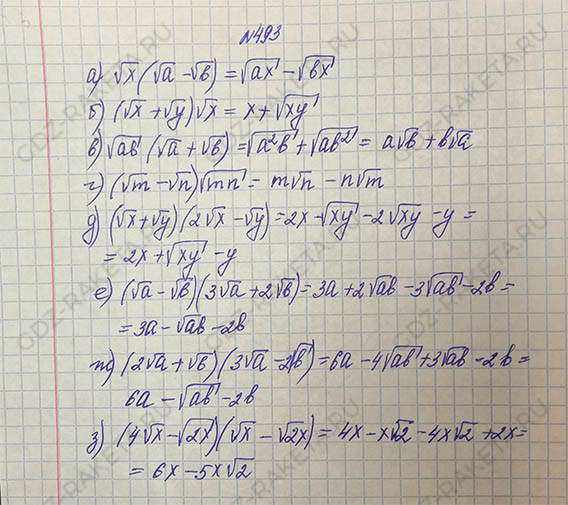 №493
а) √x (√a - √b) = √ax - √bx
б) (√x + √y)√x = x + √xy
в) √ab (√a + √b) = √a²b + √ab² = a√b + b√a
г) (√m - √n)√mn = m√n - n√m
д) (√x + √y)(2√x - √y) = 2x - √xy - 2√xy - y =
= 2x + √xy - y
е) (√a - √b)(3√a + 2√b) = 3a + 2√ab - 3√ab - 2b =
= 3a - √ab - 2b
ж) (2√a + √b)(3√a - 2√b) = 6a - 4√ab + 3√ab - 2b =
6a - √ab - 2b
з) (4√x - √2x)(√x - √2x) = 4x - x√2 - 4x√2 + 2x =
= 6x - 5x√2
GDZ-RAKETA.RU